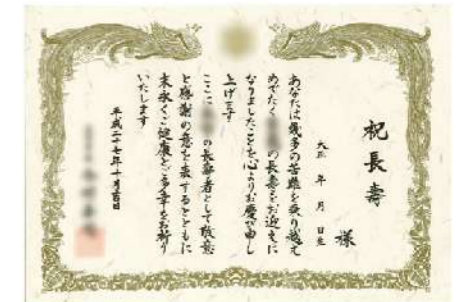 祝長壽
様
大正 年 月 日生
あなたは幾多の苦難を乗り越え
めでたく の長寿をお迎えに
なりましたことを心よりお慶び申し
上げます
ここに の長寿者として敬意
と感謝の意を表するとともに
末永くご健康とご多幸をお祈り
いたします
平成二十七年十月吉日